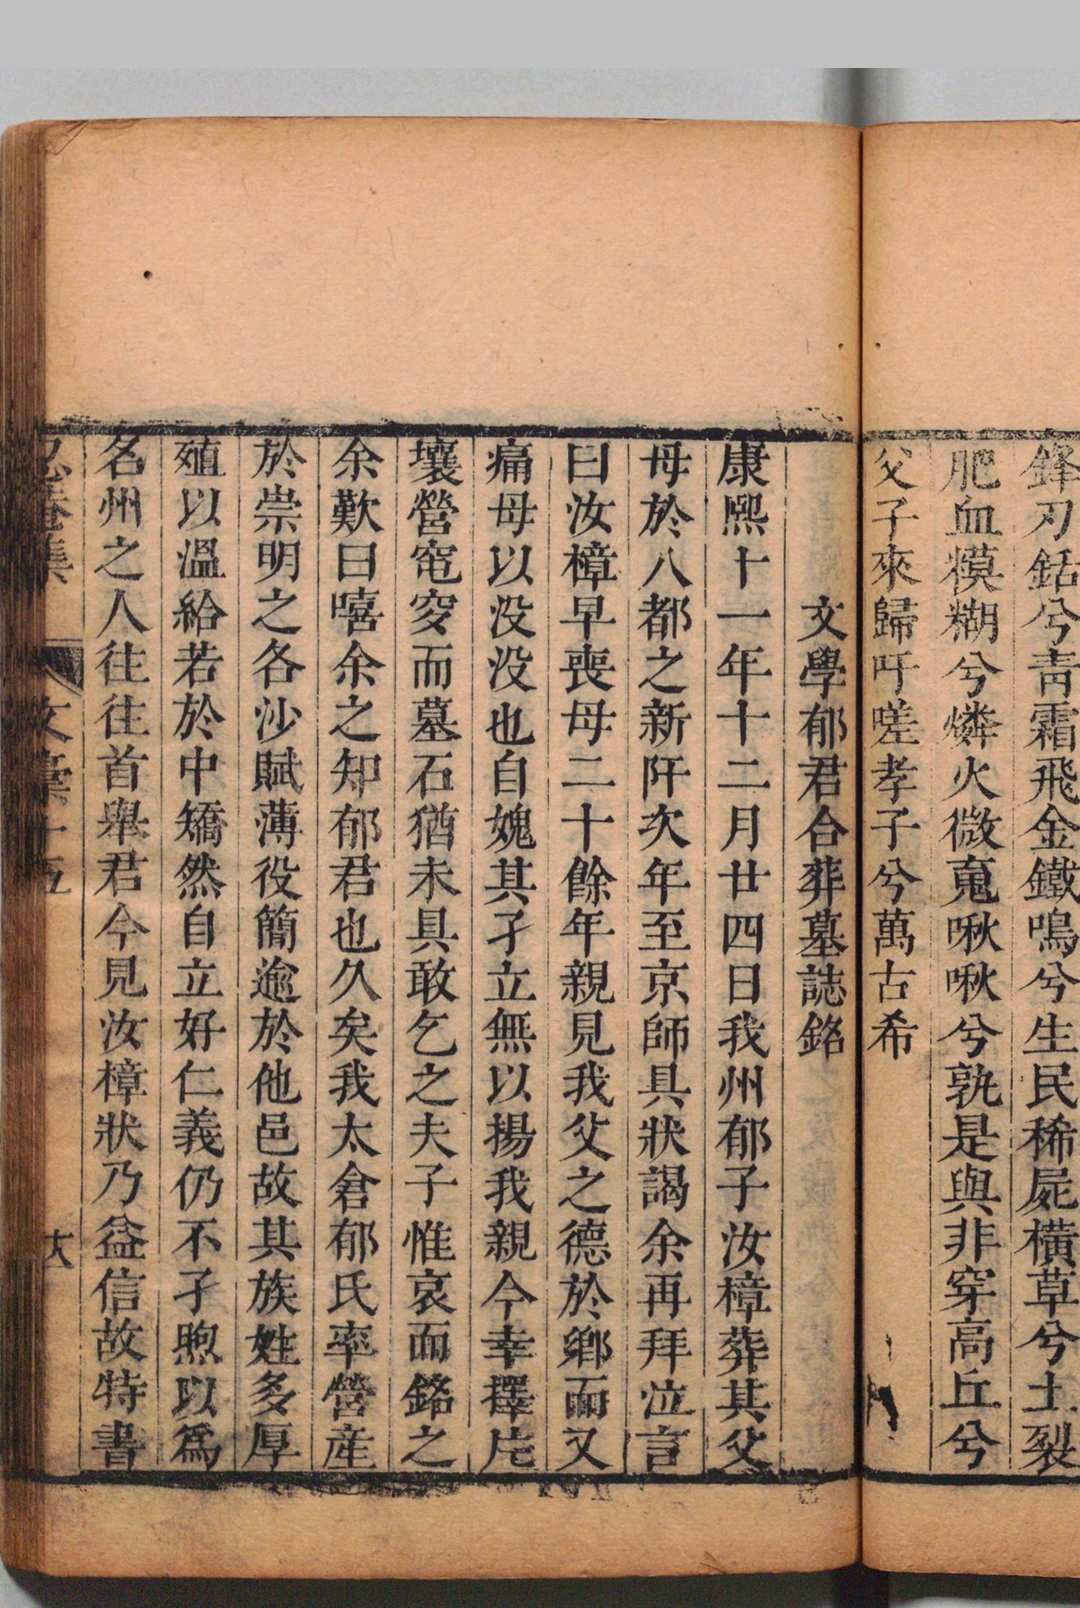 鋒刃銛兮靑霜飛金鐵鳴兮生民稀屍橫草兮土裂
肥血糢糊兮燐火微䰟啾啾兮孰是與非穿高丘兮
父子來歸吁嗟孝子兮萬古希
文學郁君合葬墓誌銘
康熙十一年十二月廿四日我州郁子汝樟葬其父
母於八都之新阡次年至京師具狀謁余再拜泣言
曰汝樟早喪母二十餘年親見我父之德於鄉而又
痛母以没没也自媿其孑立無以揚我親今幸擇片
壤營窀穸而墓石猶未具敢乞之夫子惟哀而銘之
余歎曰嘻余之知郁君也久矣我太倉郁氏率營産
於崇明之各沙賦薄役簡逾於他邑故其族姓多厚
殖以溫給若於中矯然自立好仁義仍不孑煦以爲
名州之人往往首舉君今見汝樟狀乃益信故特書
忍菴集
文藁十五